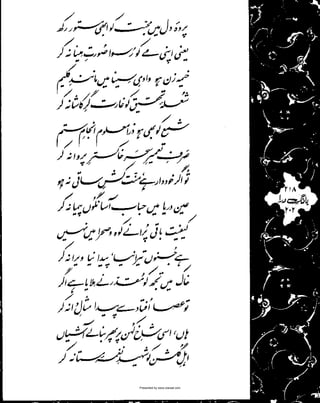 پردۂ دل میں محبت کو ابھی مستور رکھ
یعنی اپنی مے کو رسوا صورتِ مینا نہ کر
خیمہ زن ہو وادیِ سینا میں مانندِ کلیم
شعلۂ تحقیق کو غارت گرِ کاشانہ کر
شمع کو بھی ہو ذرا معلوم انجامِ ستم
صرفِ تعمیرِ سحر خاکسترِ پروانہ کر
تو اگر خوددار ہے منت کشِ ساقی نہ ہو
عین دریا میں حباب آسا نگوں پیمانہ کر
کیفیت باقی پرانے کوہ و صحرا میں نہیں
ہے جنوں تیرا نیا، پیدا نیا ویرانہ کر
خاک میں تجھ کو مقدر نے ملایا ہے اگر
تو عصا افتاد سے پیدا مثالِ دانہ کر
ہاں، اسی شاخِ کہن پر پھر بنا لے آشیاں
اہلِ گلشن کو شہیدِ نغمۂ مستانہ کر
۲۱۸
بانگِ درا
۲۰۲
Presented by